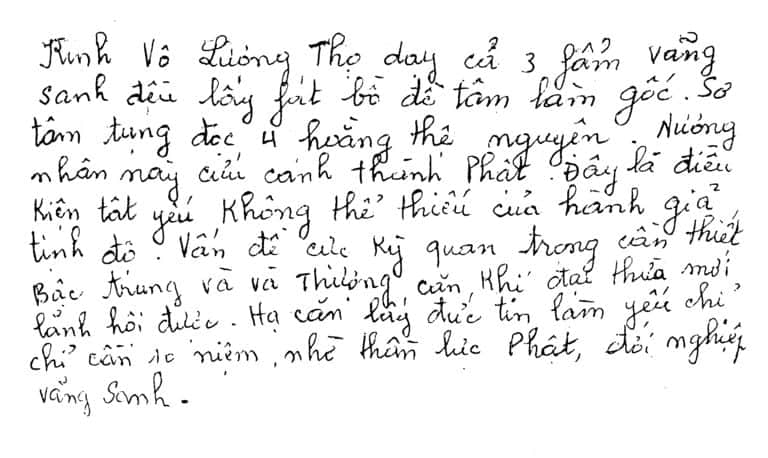 Kinh Vô Lường Thọ dạy cả 3 fẩm vẵng
sanh đều lấy fát bồ đề tâm làm gốc. Sơ
tâm tụng đọc 4 hoằng thệ nguyện. Nương
nhân này cảnh thành Phật. Đây là điều
kiện tất yếu không thể thiếu của hành giả
tịnh độ. Vấn đề cực kỳ quan trọng cần thiết
Bậc trung và và Thượng căn, Khí đại thừa mới
lãnh hội được. Hạ căn lấy đức tin làm yếu chỉ
chỉ cần 10 niệm, nhờ thần lực Phật, đới nghiệp
vẵng sanh.